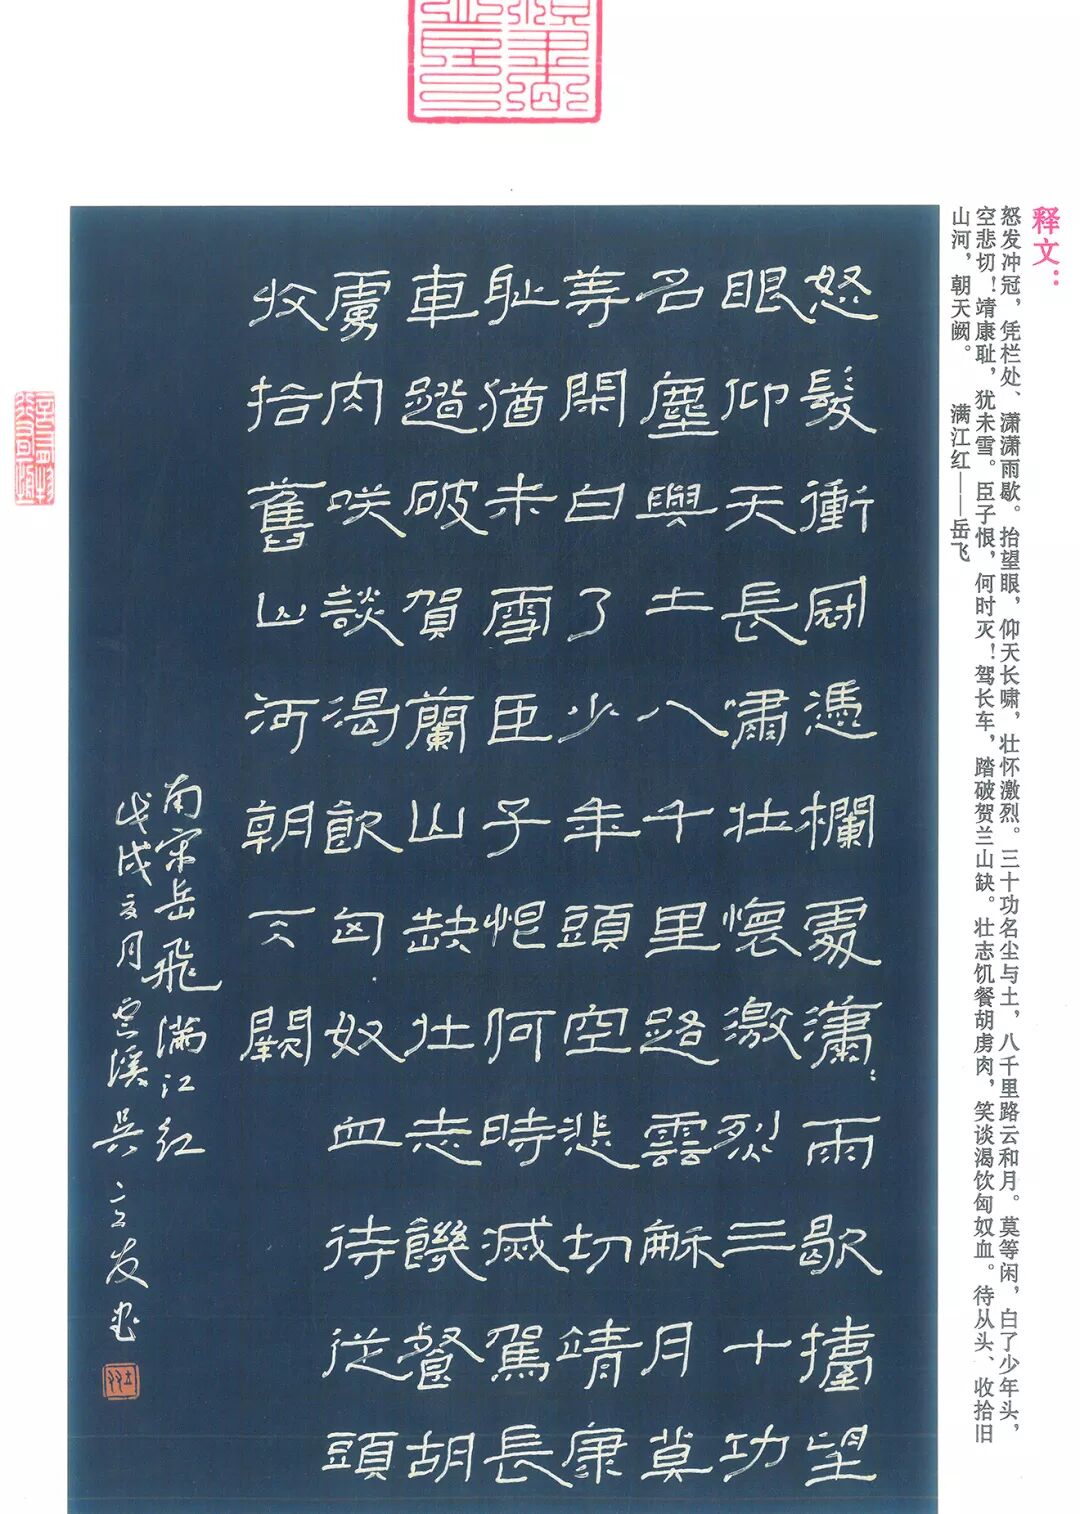 释文：
怒发冲冠，凭栏处、潇潇雨歇。抬望眼，仰天长啸，壮怀激烈。三十功名尘与土，八千里路云和月。莫等闲，白了少年头，
空悲切！靖康耻，犹未雪。臣子恨，何时灭！驾长车，踏破贺兰山缺。壮志饥餐胡虏肉，笑谈渴饮匈奴血。待从头、收拾旧
山河，朝天阙。 满江红——岳飞
怒髮衝冠憑欄處瀟:雨歇擡望
眼仰天長嘯壯懷激烈三十功
名塵與土八千里路雲龢月莫
等閑白了少年頭空悲切靖康
耻猶未雪臣子恨何時滅駕長
車踏破賀蘭山缺壯志饑餐胡
虜肉咲談渴飲匈奴血待從頭
收拾舊山河朝天闕
南宋岳飛滿江红
戊戌月雲溪吴立发书